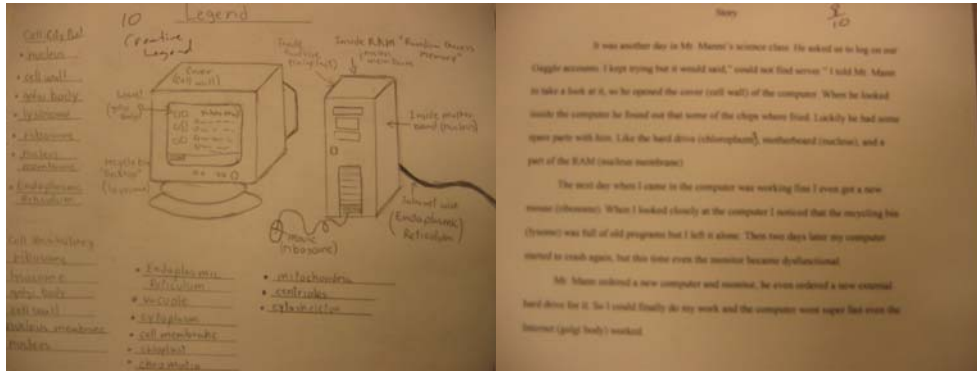 10
Legend
Creative
Legend
• nucleus
• cell wall
• golgi body
• lysosome
• ribosome
• nucleus
membrane
• Endoplasmic
Reticulum
Cover
(cell wall)
Inside RAM "Random Access
Memory"
Inside mother
board (nucleus)
Internet wire
(Endoplasmic
Reticulum)
Mouse
(ribosome)
recycle bin
ribosome
lysosome
golgi body
cell wall
nucleus membrane
nucleus
• Endoplasmic
Reticulum
• vacuole
• cytoplasm
• cell membrane
• chromatin
• mitochondria
• centrioles
• cytoskeleton
Story
8/10
It was another day in Mr. Manni's science class. He asked us to log on our
Gaggle accounts. I kept trying but it would said," could not find server." I told Mr. Mann
to take a look at it, so he opened the cover (cell wall) of the computer. When he looked
inside the computer he found out that some of the chips where fried. Luckily he had some
spare parts with him. Like the hard drive (chloroplasm), motherboard (nucleus), and a
part of the RAM (nucleus membrane)
The next day when I came in the computer was working fine I even got a new
mouse (ribosome). When I looked closely at the computer I noticed that the recycling bin
(lysome) was full of old programs but I left it alone. Then two days later my computer
started to crash again, but this time even the monitor became dysfunctional.
Mr. Mann ordered a new computer and monitor, he even ordered a new external
hard drive for it. So I could finally do my work and the computer went super fast even the
Internet (golgi body) worked.